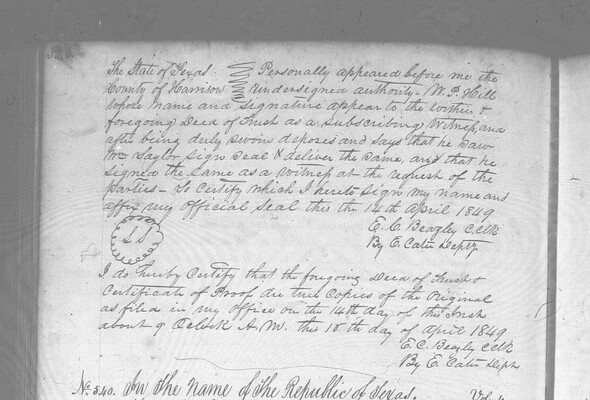 The State of Texas. Personally appeared before me the
County of Harrison undersigned authority - W. P. Hill
whose name and signature appear to the within &
foregoing Deed of Trust as a subscribing Witness, and
after being duly sworn deposes and says that he saw
Wm Taylor sign seal & deliver the same, and that he
signed the same as a witness at the request of the
parties - To Certify which I hereto sign my name and
affix my official seal this the 14th April 1849
E. C. Beagley Clk
By E. Cater Depty
L S
I do hereby certify that the foregoing Deed of Trust &
Certificate of Proof are true copies of the Original
as filed in my office on the 14th day of this Inst
about 9 Oclock A. M. this 18th day of April 1849
E C. Beagly Clk
By E. Cater Dept
No. 540. In The name of The Republic of Texas. Vol.